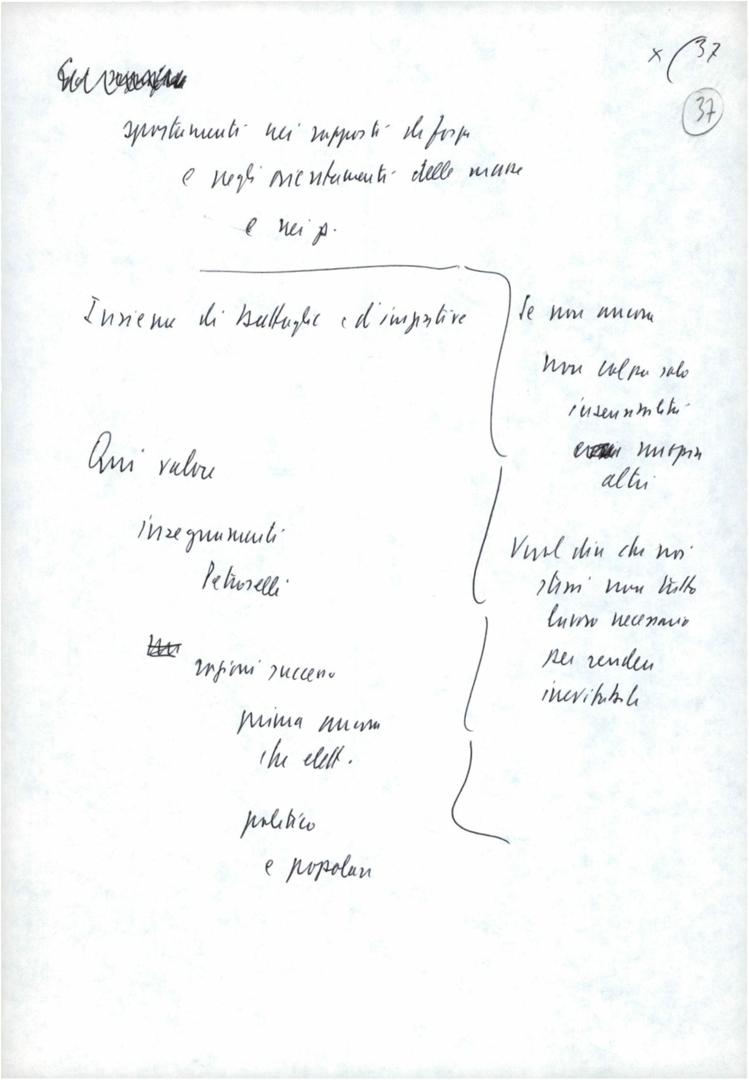 x (37
37
spostamenti nei rapporti di forza
e negli orientamenti delle masse
e nei p.
Insieme di battaglie e d'iniziative
Qui valore
insegnamenti
Petroselli
ragioni successo
prima ancora
che elett.
politico
e popolare
Se non ancora
non colpa solo
insensibilità
miopia
altri
Vuol dire che noi
stessi non tutto
lavoro necessario
per rendere
inevitabile